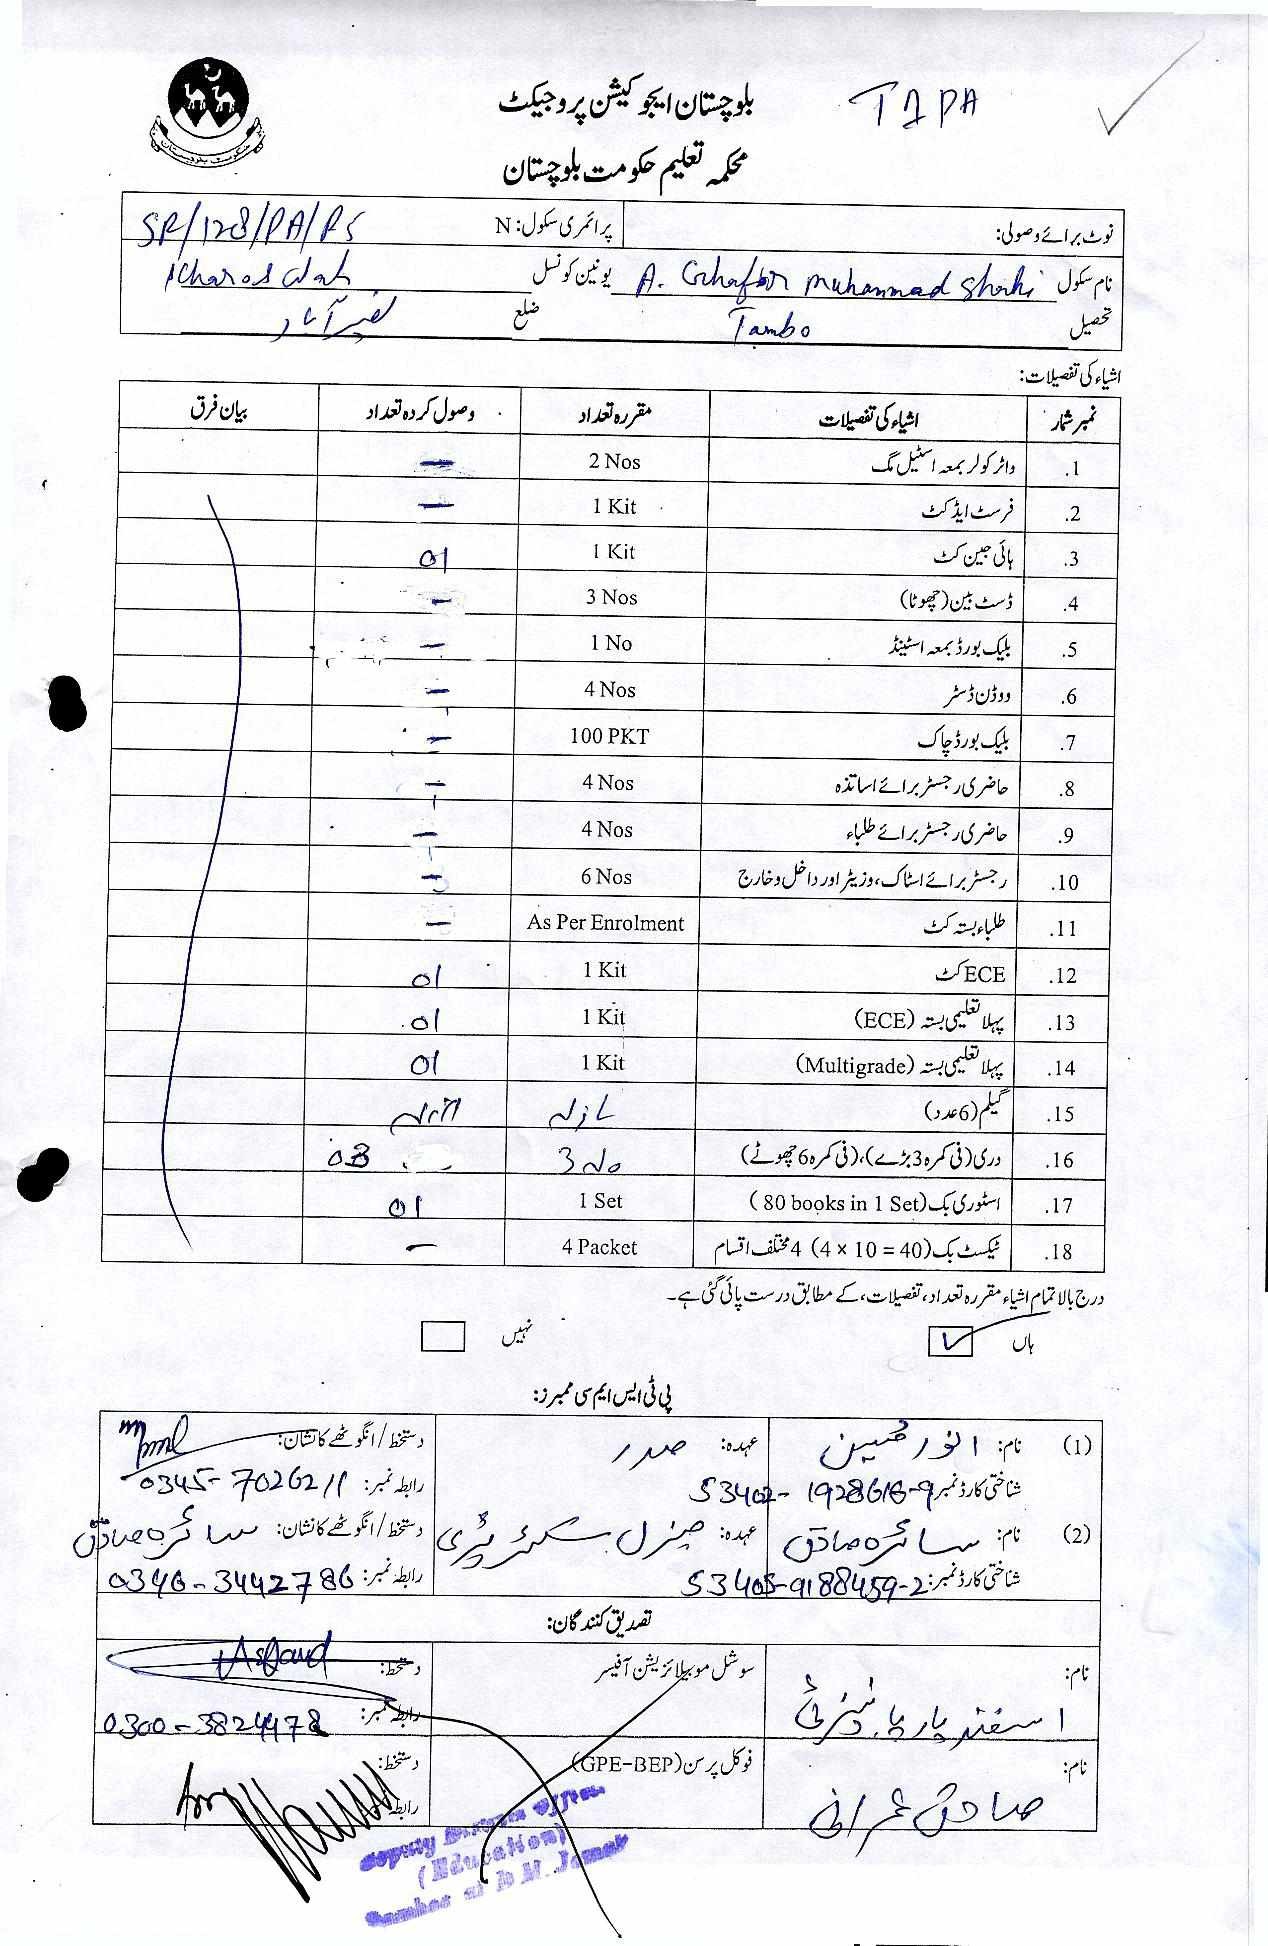 بلوچستان ایجوکیشن پروجیکٹ
محکمہ تعلیم حکومت بلوچستان
حکومت بلوچستان
نوٹ برائے وصولی: پرائمری سکول: N SR/128/PA/PS
نام سکول A. Ghaffor Muhammad Shahi یونین کونسل
تحصیل Tambo ضلع نصیرآباد
اشیاء کی تفصیلات:
نمبر شمار اشیاء کی تفصیلات مقررہ تعداد وصول کردہ تعداد بیان فرق
1. واٹر کولر بمعہ اسٹیل مگ 2 Nos —
2. فرسٹ ایڈ کٹ 1 Kit —
3. ہائی جین کٹ 1 Kit 01
4. ڈسٹ بین (چھوٹا) 3 Nos —
5. بلیک بورڈ بمعہ اسٹینڈ 1 No —
6. ووڈن ڈسٹر 4 Nos —
7. بلیک بورڈ چاک 100 PKT —
8. حاضری رجسٹر برائے اساتذہ 4 Nos —
9. حاضری رجسٹر برائے طلباء 4 Nos —
10. رجسٹر برائے اسٹاک، وزیٹر اور داخل و خارج 6 Nos —
11. طلباء بستہ کٹ As Per Enrolment —
12. ECE کٹ 1 Kit 01
13. پہلا تعلیمی بستہ (ECE) 1 Kit 01
14. پہلا تعلیمی بستہ (Multigrade) 1 Kit 01
15. گیلم (6 عدد)
16. دری (فی کمرہ 3 بڑے)، (فی کمرہ 6 چھوٹے) 3 No 03
17. اسٹوری بک (80 books in 1 Set) 1 Set 01
18. ٹیکسٹ بک (4 × 10 = 40) 4 مختلف اقسام 4 Packet —
درج بالا تمام اشیاء مقررہ تعداد، تفصیلات، کے مطابق درست پائی گئی ہے۔
ہاں ✓ نہیں
پی ٹی ایس ایم سی ممبرز:
(1) نام: انور حسین عہدہ: صدر دستخط/انگوٹھے کا نشان:
شناختی کارڈ نمبر 53402-1928616-9 رابطہ نمبر: 0345-7026211
(2) نام: سائرہ صادق عہدہ: جنرل سیکرٹیری دستخط/انگوٹھے کا نشان: سائرہ صادق
شناختی کارڈ نمبر: 53405-9188459-2 رابطہ نمبر: 0346-3442786
تصدیق کنندگان:
نام: سوشل موبیلائزیشن آفیسر دستخط:
رابطہ نمبر: 0300-3824478
نام: صادق عمرانی فوکل پرسن (GPE-BEP) دستخط:
رابطہ
Deputy District Officer
(Education)